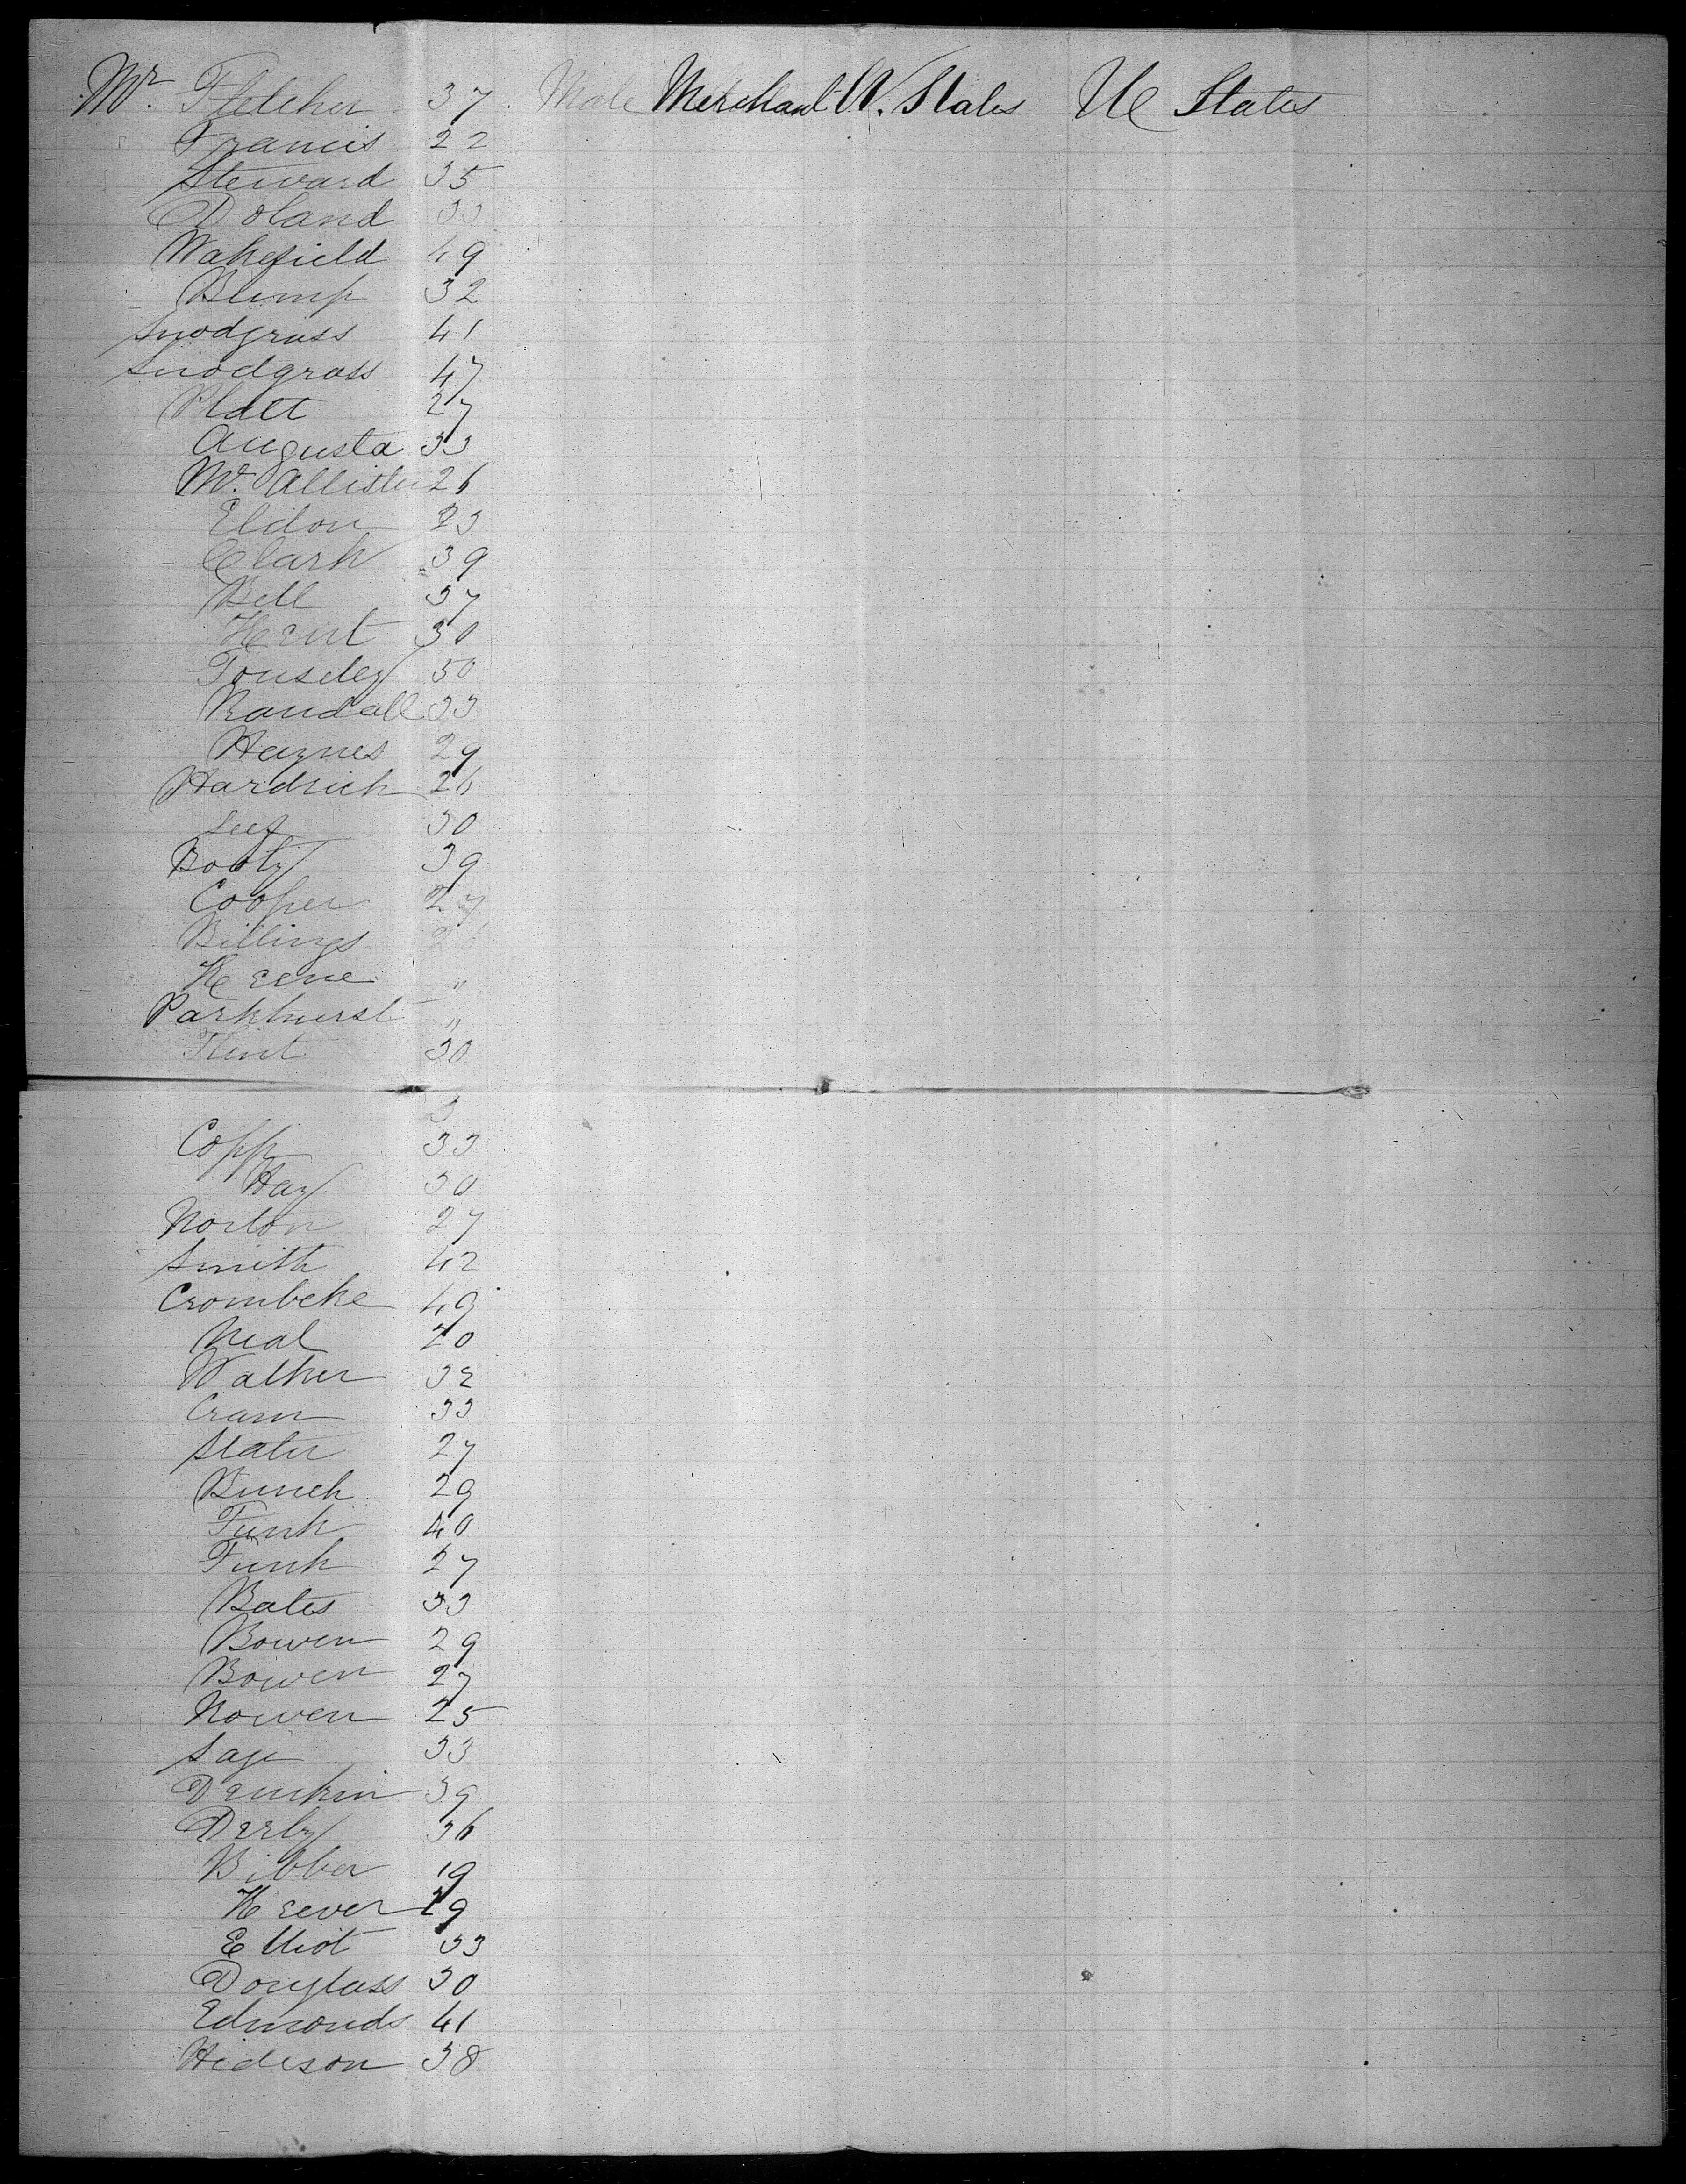 Mr. Fletcher 37 Male Merchant U. States U States
Francis 22
Steward 35
Doland 33
Wakefield 49
Blimp 32
Snodgrass 41
Snodgrass 47
Platt 27
Augusta 33
Mc Allister 26
Eldon 23
Clark 39
Bell 37
Kent 30
Tousley 50
Randall 33
Haynes 29
Hardrick 26
30
Booty 39
Cooper 27
Billings 26
Keene "
Parkhurst "
Flint 30
Copp 33
Hay 30
Norton 27
Smith 42
Crombeke 49
Neal 20
Walker 32
Cram 33
Slater 27
Bunch 29
Funk 40
Funk 27
Bates 33
Bowen 29
Bowen 27
Nowen 25
Sage 33
39
Derby 36
Bibber 19
Keever 29
Elliot 33
Douglass 30
Edmonds 41
Hideson 38